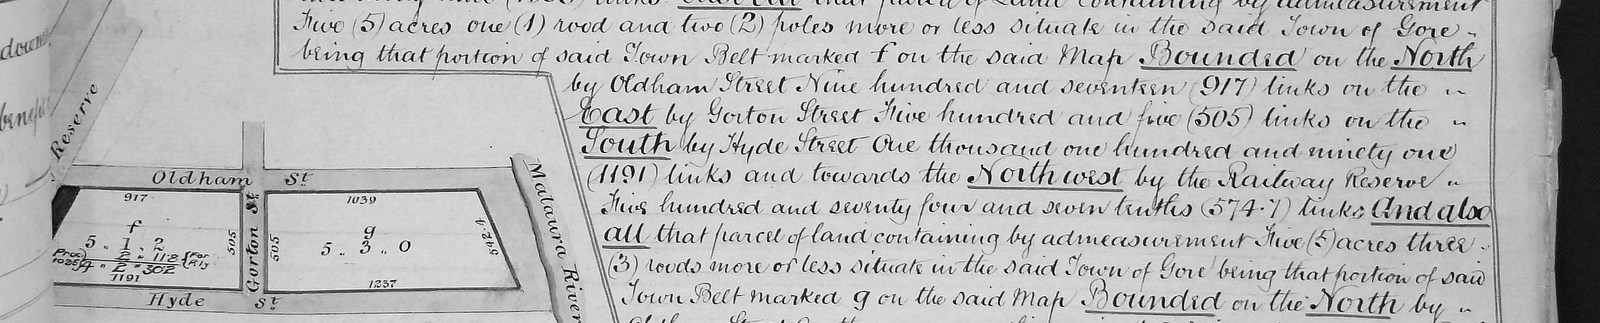 Five (5) acres one (1) rood and two (2) poles more or less situate in the said Town of Gore
being that portion of said Town Belt marked f on the said Map Bounded on the North
by Oldham Street Nine hundred and seventeen (917) links on the
East by Gorton Street Five hundred and five (505) links on the
South by Hyde Street One thousand one hundred and ninety one
(1191) links and towards the North west by the Railway Reserve
Five hundred and seventy four and seven tenths (574.7) links And also
all that parcel of land containing by admeasurement Five (5) acres three
(3) roods more or less situate in the said Town of Gore being that portion of said
Town Belt marked g on the said Map Bounded on the North by
Reserve
Oldham St
Gorton St
Hyde St
Mataura River
917
f
5 " 1 " 2
2 " 118
4 " 2 " 302
1191
505
505
1039
g
5 " 3 " 0
1237